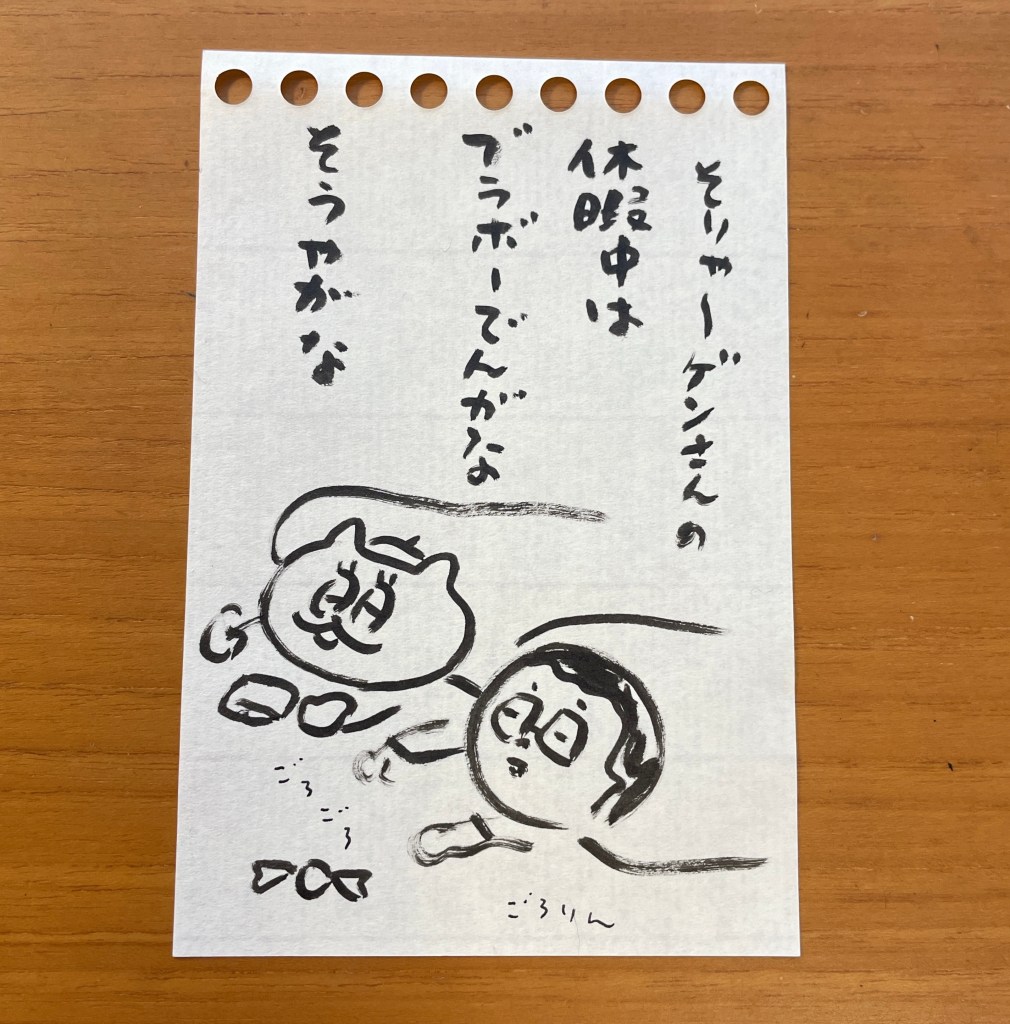 そりゃーゲンさんの
休暇中は
ブラボーでんがな
そうやがな
ごろ
ごろ
ごろりん